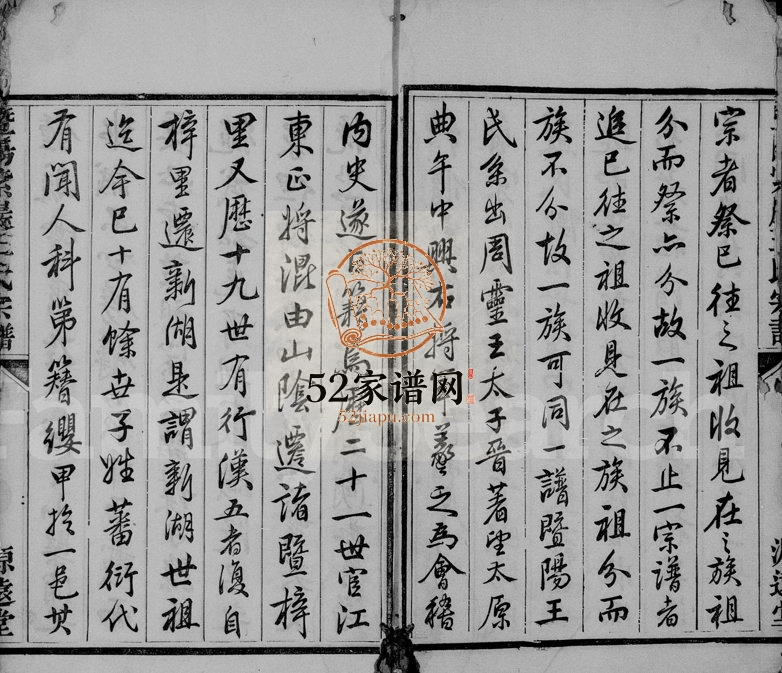 宗者祭已往之祖收見在之族祖
分而祭亦分故一族不止一宗譜者
追已往之祖收見在之族祖分而
族不分故一族可同一譜暨陽王
氏系出周靈王太子晉著望太原
典午中興右將軍羲之為會稽
內史遂占籍焉歷二十一世官江
東正將混由山陰遷諸暨梓
里又歷十九世有行漢五者復自
梓里遷新湖是謂新湖世祖
迄今已十有餘世子姓蕃衍代
有聞人科第簪纓甲於一邑其
暨陽紫巖王氏宗譜
源遠堂
52家谱网
52jiapu.com